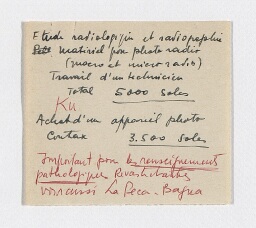 Etude radiologique et radiographie
materiel pour photo radio
(macro et micro radio)
Travail d'un technicien
Total 5000 soles
Ku
Achat d'un appareil photo
Contax 3.500 soles
Important pour les renseignements
pathologiques
voir aussi La Peca - Bagua